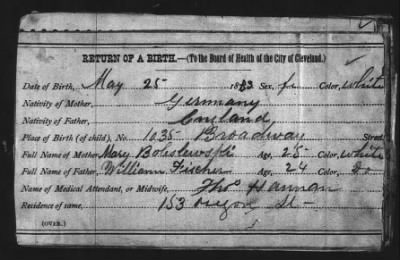 RETURN OF A BIRTH.—(To the Board of Health of the City of Cleveland.)
Date of Birth, May 25 1883 Sex, f. Color, White
Nativity of Mother, Germany
Nativity of Father, England
Place of Birth (of child), No. 1035 Broadway Street
Full Name of Mother Mary Age, 25 Color, White
Full Name of Father, William Fischer Age, 24 Color, Do
Name of Medical Attendant, or Midwife, Thos Hannan
Residence of same, 153 Oregon St
(OVER.)